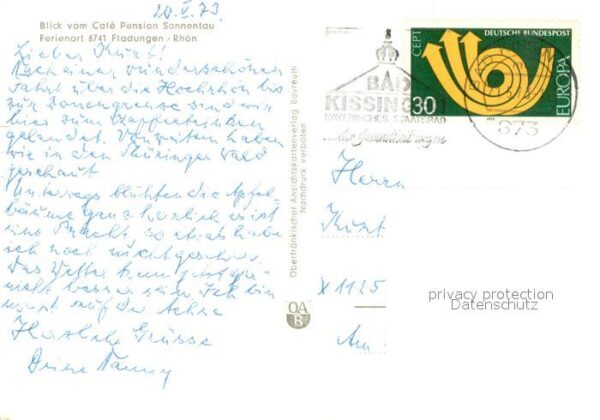 20.V.73
Blick vom Café Pension Sonnentau
Ferienort 8741 Fladungen / Rhön
Lieber Kurt!
Nach einer wunderschönen
Fahrt über die Hochrhön bis
zur Zonengrenze sind wir
hier zum Kaffeetrinken
gelandet. Von weiten haben
wir in den Thüringer Wald
geschaut
Unterwegs blühten die Apfel
bäume ganz herrlich es ist
eine Pracht so etwas habe
ich noch nicht gesehen.
Das Wetter kann gar
nicht besser sein. Ich bin
auf der Achse
Herzliche Grüsse
Deine
Oberfränkischer Ansichtskartenverlag Bayreuth
Nachdruck verboten
OA
B
BAD
KISSINGEN
BAYERISCHES STAATSBAD
...der Gesundheit wegen
873
CEPT
DEUTSCHE BUNDESPOST
EUROPA
30
Herrn
Kurt
X 1125
Am
privacy protection
Datenschutz